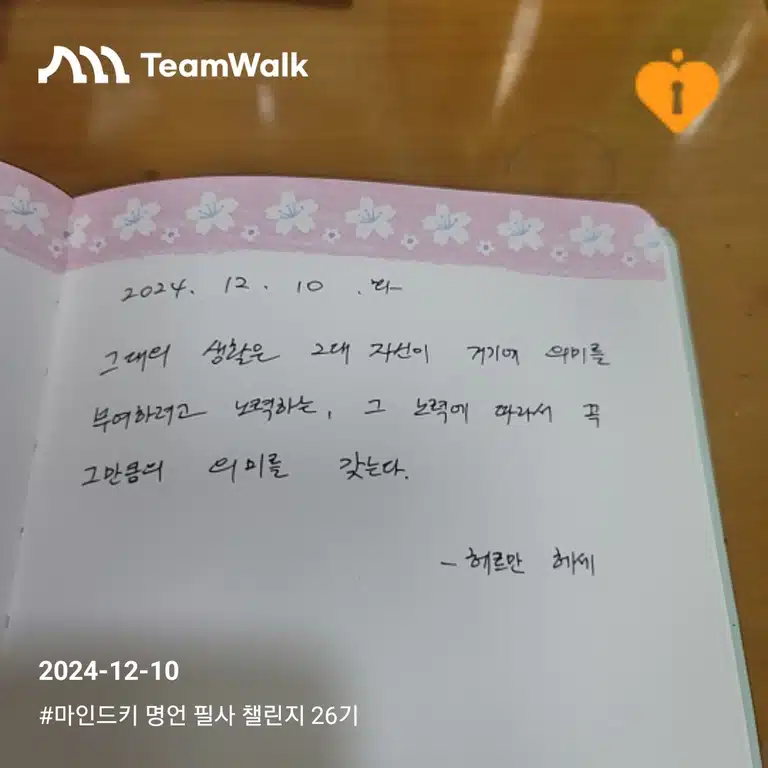 TeamWalk
2024. 12. 10 . 화
그대의 생활은 그대 자신이 거기에 의미를
부여하려고 노력하는, 그 노력에 따라서 꼭
그만큼의 의미를 갖는다.
- 헤르만 헤세
2024-12-10
#마인드키 명언 필사 챌린지 26기